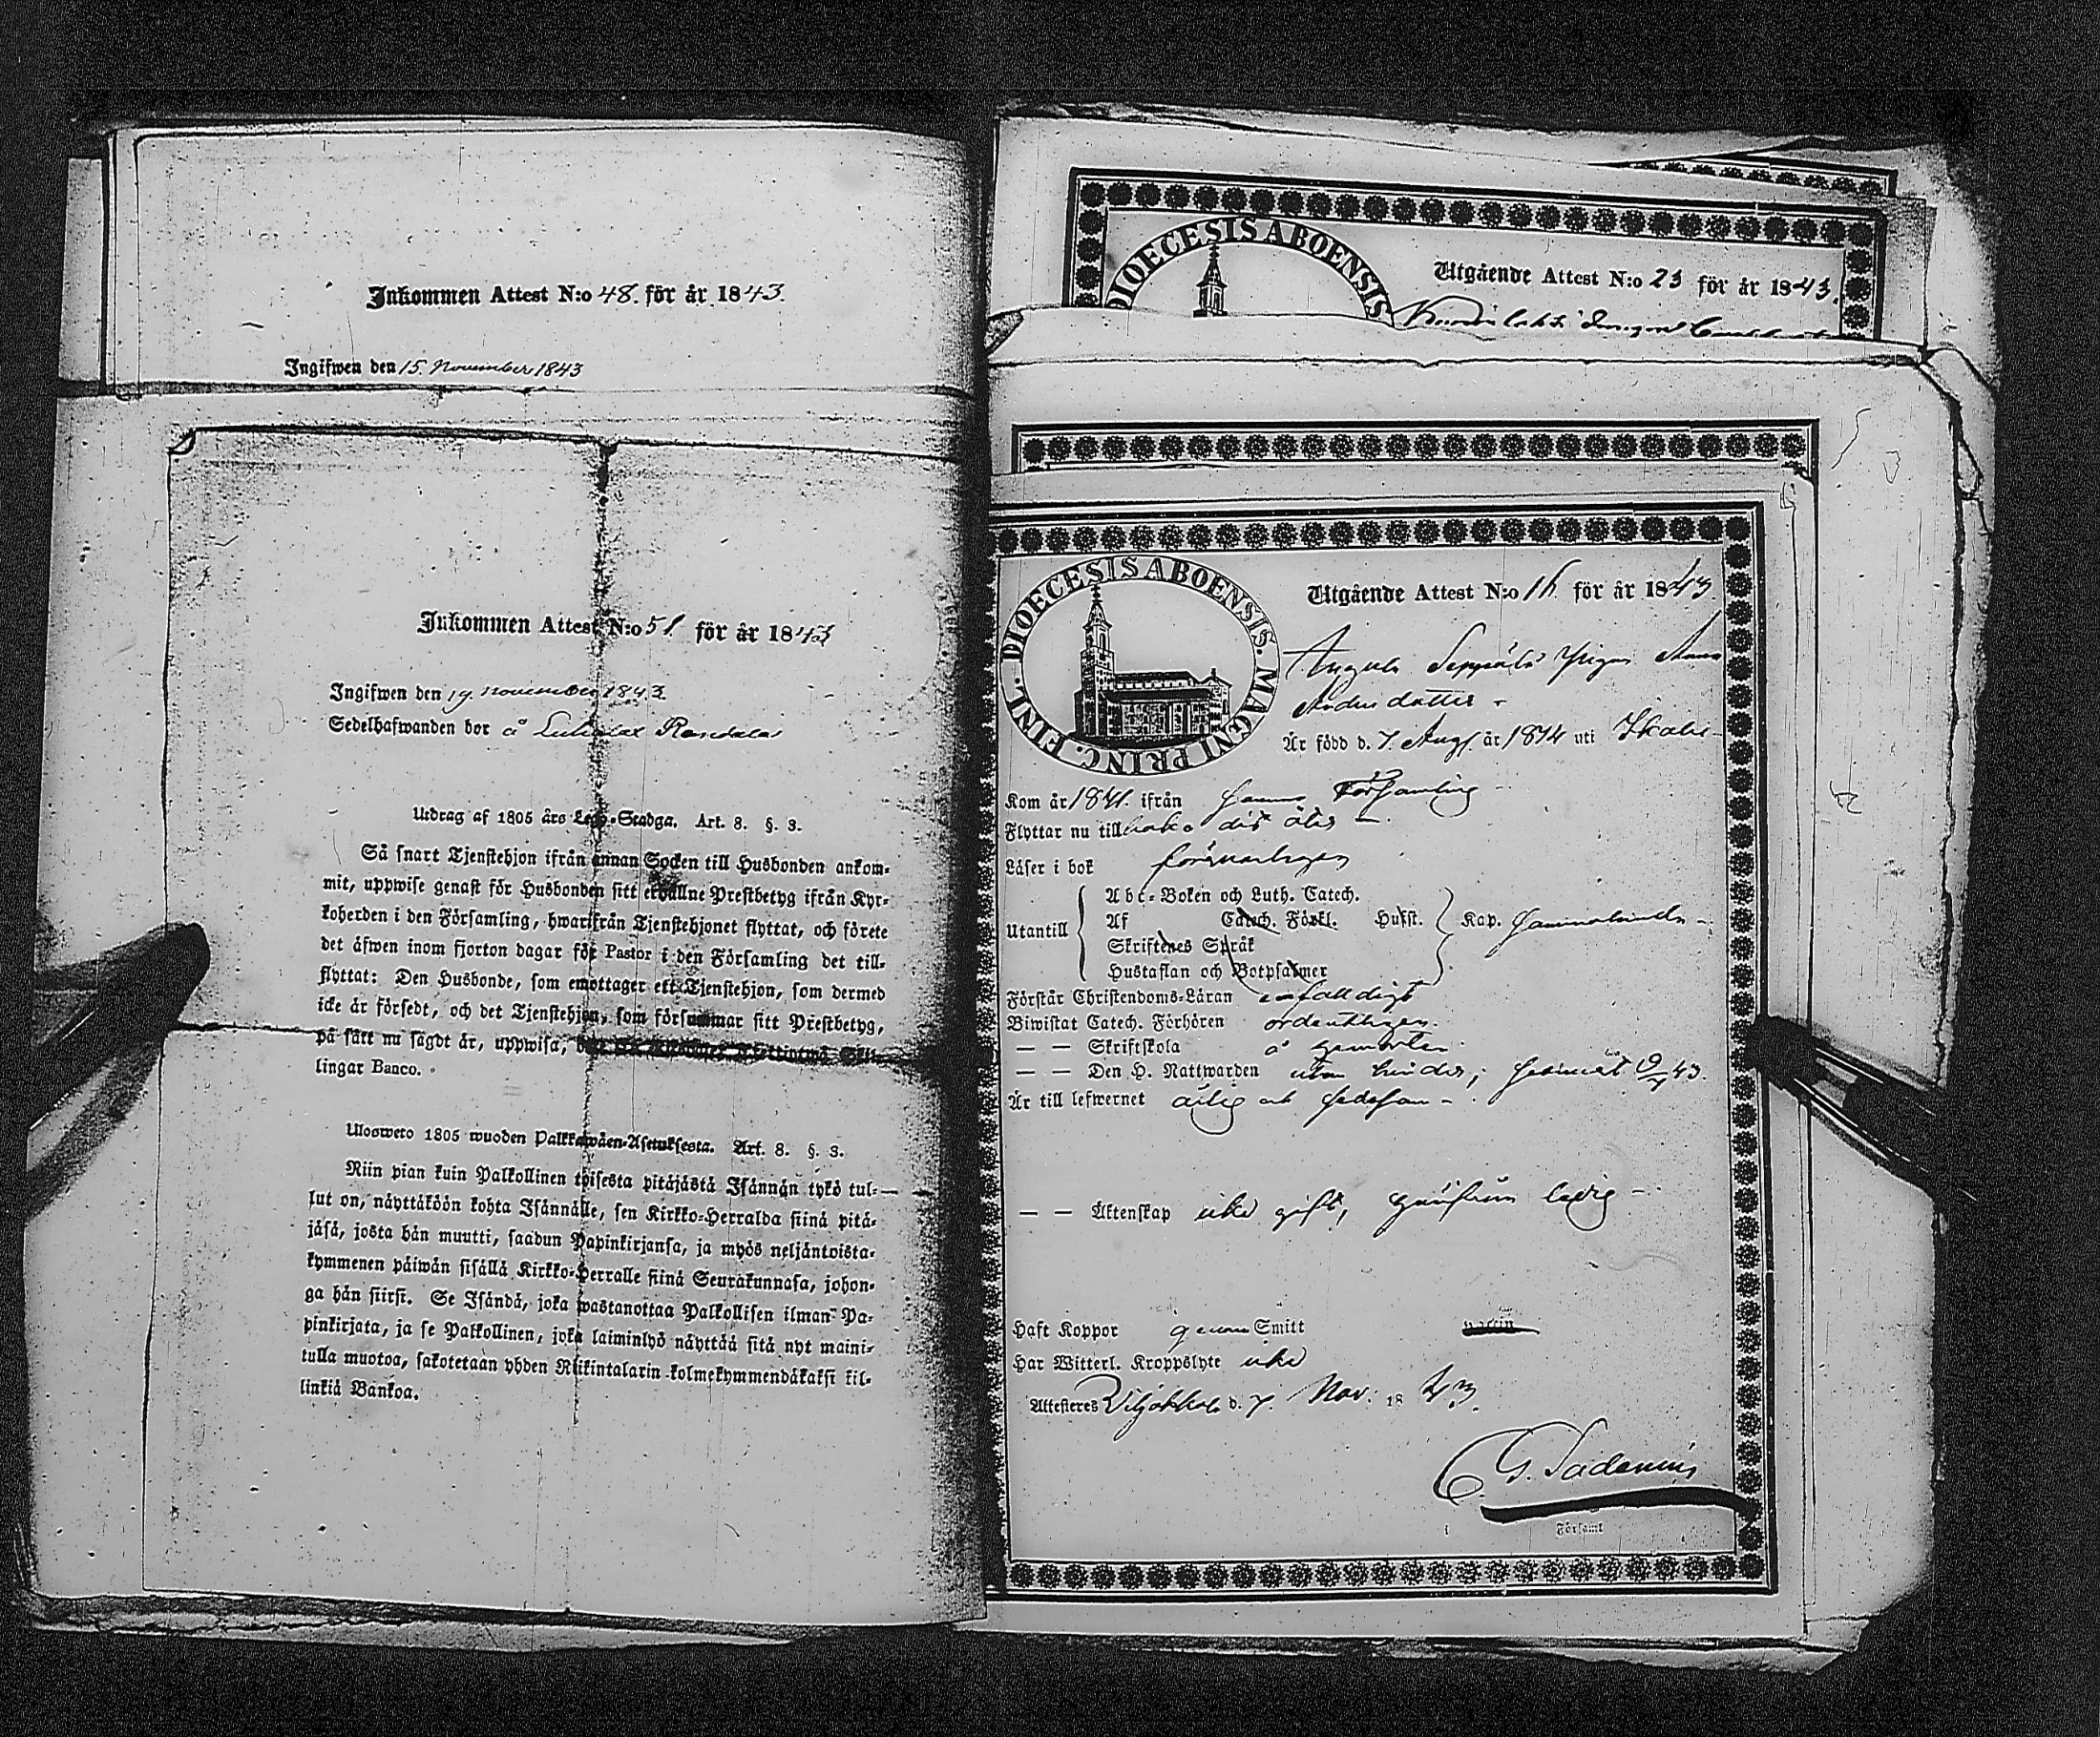 Inkommen Attest N:o 48. för år 1843.
Ingifwen den 15. November 1843
Inkommen Attest N:o 51. för år 1843
Ingifwen den 19. November 1843.
Sedelhafwanden bor å
Utdrag af 1805 års Lego-Stadga. Art. 8. §. 3.
Så snart Tjenstehjon ifrån annan Socken till Husbonden ankom-
mit, uppwise genast för Husbonden sitt erhållne Prestbetyg ifrån Kyr-
koherden i den Församling, hwarifrån Tjenstehjonet flyttat, och förete
det äfwen inom fjorton dagar för Pastor i den Församling det till-
flyttat: Den Husbonde, som emottager ett Tjenstehjon, som dermed
icke är försedt, och det Tjenstehjon, som försummar sitt Prestbetyg,
på sätt nu sagdt är, uppwisa,
lingar Banco.
Ulosweto 1805 wuoden Palkkawäen-Asetuksesta. Art. 8. §. 3.
Niin pian kuin Palkollinen toisesta pitäjästä Isännän tykö tul-
lut on, näyttäköön kohta Isännälle, sen Kirkko-Herralda siinä pitä-
jäsä, josta hän muutti, saadun Papinkirjansa, ja myös neljäntoista-
kymmenen päiwän sisällä Kirkko-Herralle siinä Seurakunnasa, johon-
ga hän siirsi. Se Isändä, joka wastanottaa Palkollisen ilman Pa-
pinkirjata, ja se Palkollinen, joka laiminlyö näyttää sitä nyt maini-
tulla muotoa, sakotetaan yhden Riikintalarin kolmekymmendäkaksi kil-
linkiä Bankoa.
DIOECESIS ABOENSIS
Utgående Attest N:o 23 för år 1843.
DIOECESIS ABOENSIS. MAGNI PRINC. FINL.
Utgående Attest N:o 16. för år 1843.
Seppälä Pigan Anna
Andersdotter
Är född d. 7. Aug. år 1814 uti Ikalis
Kom år 1841. ifrån samma Församling
Flyttar nu till baka dit åter
Läser i bok försvarligen
Abc-Boken och Luth. Catech.
Utantill Af Catech. Förkl. Husf. Kap.
Skriftenes Språk
Hustaflan och Botpsalmer
Förstår Christendoms-Läran enfaldigt
Biwistat Catech. Förhören ordentligen.
— — Skriftskola å
— — Den H. Nattwarden utan hinder; 43.
Är till lefwernet ärlig och
— — Äktenskap icke gift, ledig
Haft Koppor genom Smitt
Har Witterl. Kroppslyte icke
Attesteres Viljakkala d. 7. Nov: 1843.
G. Sadenius
i Församl